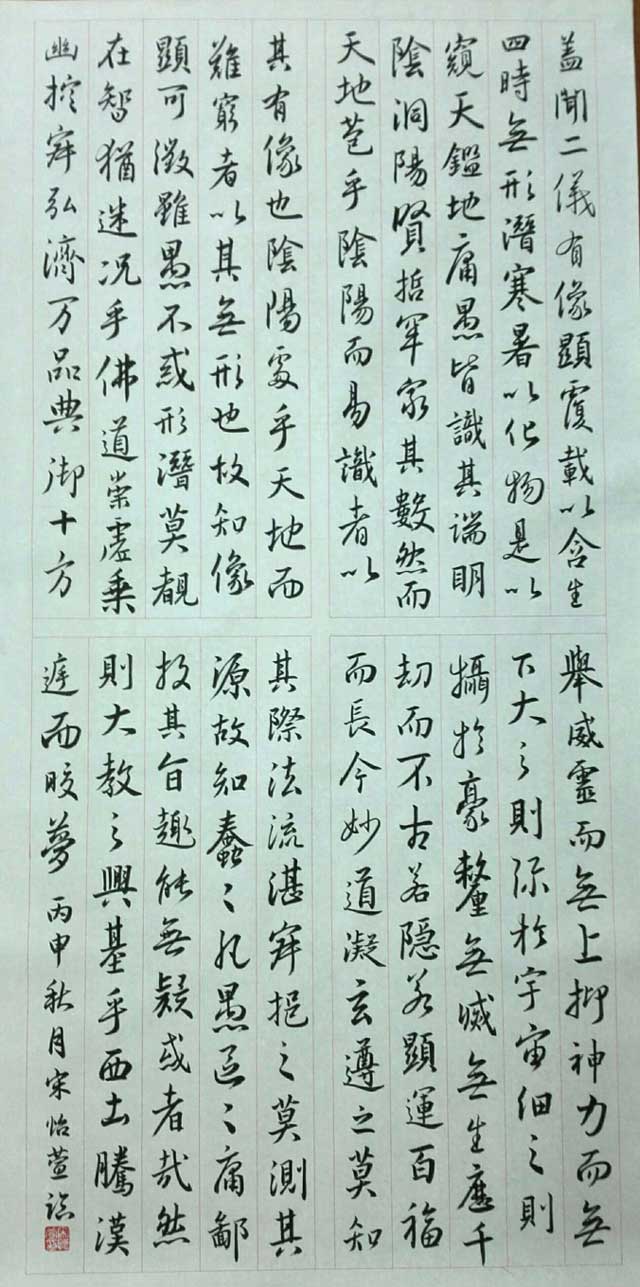 盖聞二儀有像顯覆載以含生
四時無形潛寒暑以化物是以
窺天鑑地庸愚皆識其端明
陰洞陽賢哲罕窮其數然而
天地苞乎陰陽而易識者以
其有像也陰陽處乎天地而
難窮者以其無形也故知像
顯可徵雖愚不惑形潛莫覩
在智猶迷况乎佛道崇虛乘
幽控寂弘濟万品典御十方
舉威靈而無上抑神力而無
下大之則彌於宇宙細之則
攝於豪釐無滅無生歷千
劫而不古若隱若顯運百福
而長今妙道凝玄遵之莫知
其際法流湛寂挹之莫測其
源故知蠢々凡愚區々庸鄙
投其旨趣能無疑惑者哉然
則大教之興基乎西土騰漢
庭而皎夢 丙申秋月宋怡萱臨